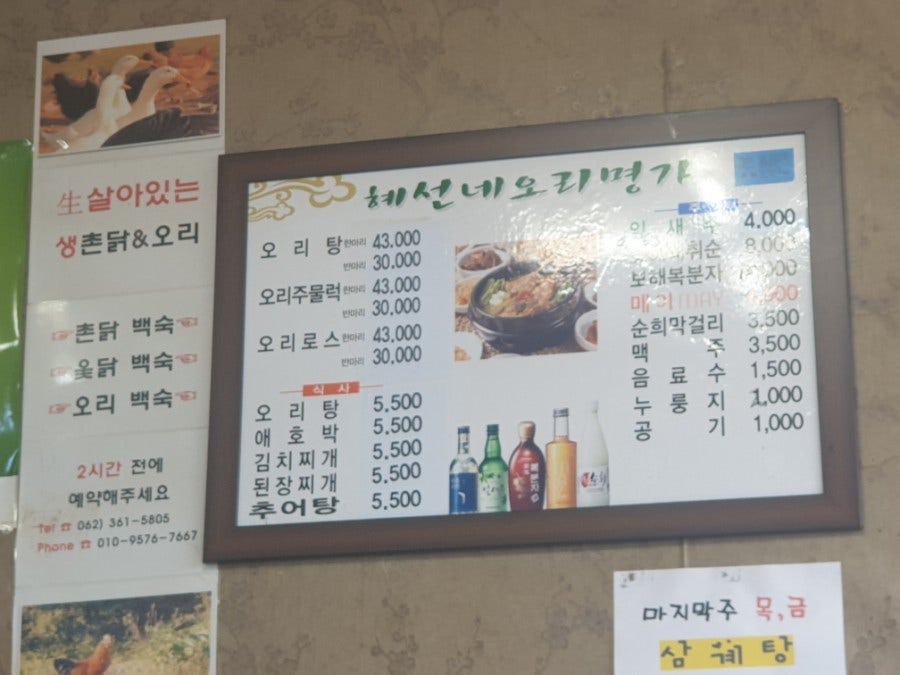 生살아있는
생촌닭&오리
☞ 촌닭 백숙 ☜
☞ 옻닭 백숙 ☜
☞ 오리 백숙 ☜
2시간 전에
예약해주세요
Tel ☎ 062) 361-5805
Phone ☎ 010-9576-7667
혜선네오리명가
오리탕 한마리 43,000
반마리 30,000
오리주물럭 한마리 43,000
반마리 30,000
오리로스 한마리 43,000
반마리 30,000
식사
오리탕 5,500
애호박 5,500
김치찌개 5,500
된장찌개 5,500
추어탕 5,500
4,000
8,000
보해복분자
매취
순희막걸리 3,500
맥주 3,500
음료수 1,500
누룽지 1,000
공기 1,000
마지막주 목,금
삼계탕